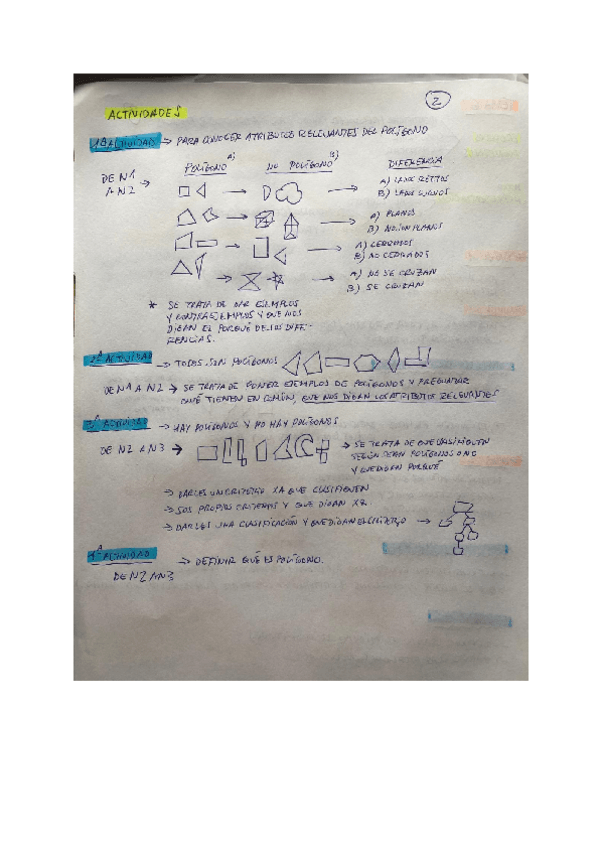 2
ACTIVIDADES
1ª ACTIVIDAD → PARA CONOCER ATRIBUTOS RELEVANTES DEL POLÍGONO
POLÍGONO A) NO POLÍGONO B) DIFERENCIA
DE N1
A N2 →
A) LINK RECTOS
B) LINK CURVOS
A) PLANOS
B) NO SON PLANOS
A) CERRADOS
B) NO CERRADOS
A) NO SE CRUZAN
B) SE CRUZAN
* SE TRATA DE DAR EJEMPLOS
Y CONTRAEJEMPLOS Y QUE NOS
DIGAN EL PORQUÉ DE LOS DIFE-
RENCIAS.
2ª ACTIVIDAD → TODOS SON POLÍGONOS
DE N1 A N2 → SE TRATA DE PONER EJEMPLOS DE POLÍGONOS Y PREGUNTAR
QUÉ TIENEN EN COMÚN, QUE NOS DIGAN LOS ATRIBUTOS RELEVANTES
3ª ACTIVIDAD → HAY POLÍGONOS Y NO HAY POLÍGONOS
DE N2 A N3 → → SE TRATA DE QUE CLASIFIQUEN
SEGÚN SEAN POLÍGONOS O NO
Y QUE DIGAN PORQUÉ
→ DARLES UN CRITERIO XA QUE CLASIFIQUEN
→ SUS PROPIOS CRITERIOS Y QUE DIGAN XQ
→ DARLES UNA CLASIFICACIÓN Y QUE DIGAN EL CRITERIO →
4ª ACTIVIDAD → DEFINIR QUÉ ES POLÍGONO.
DE N2 A N3